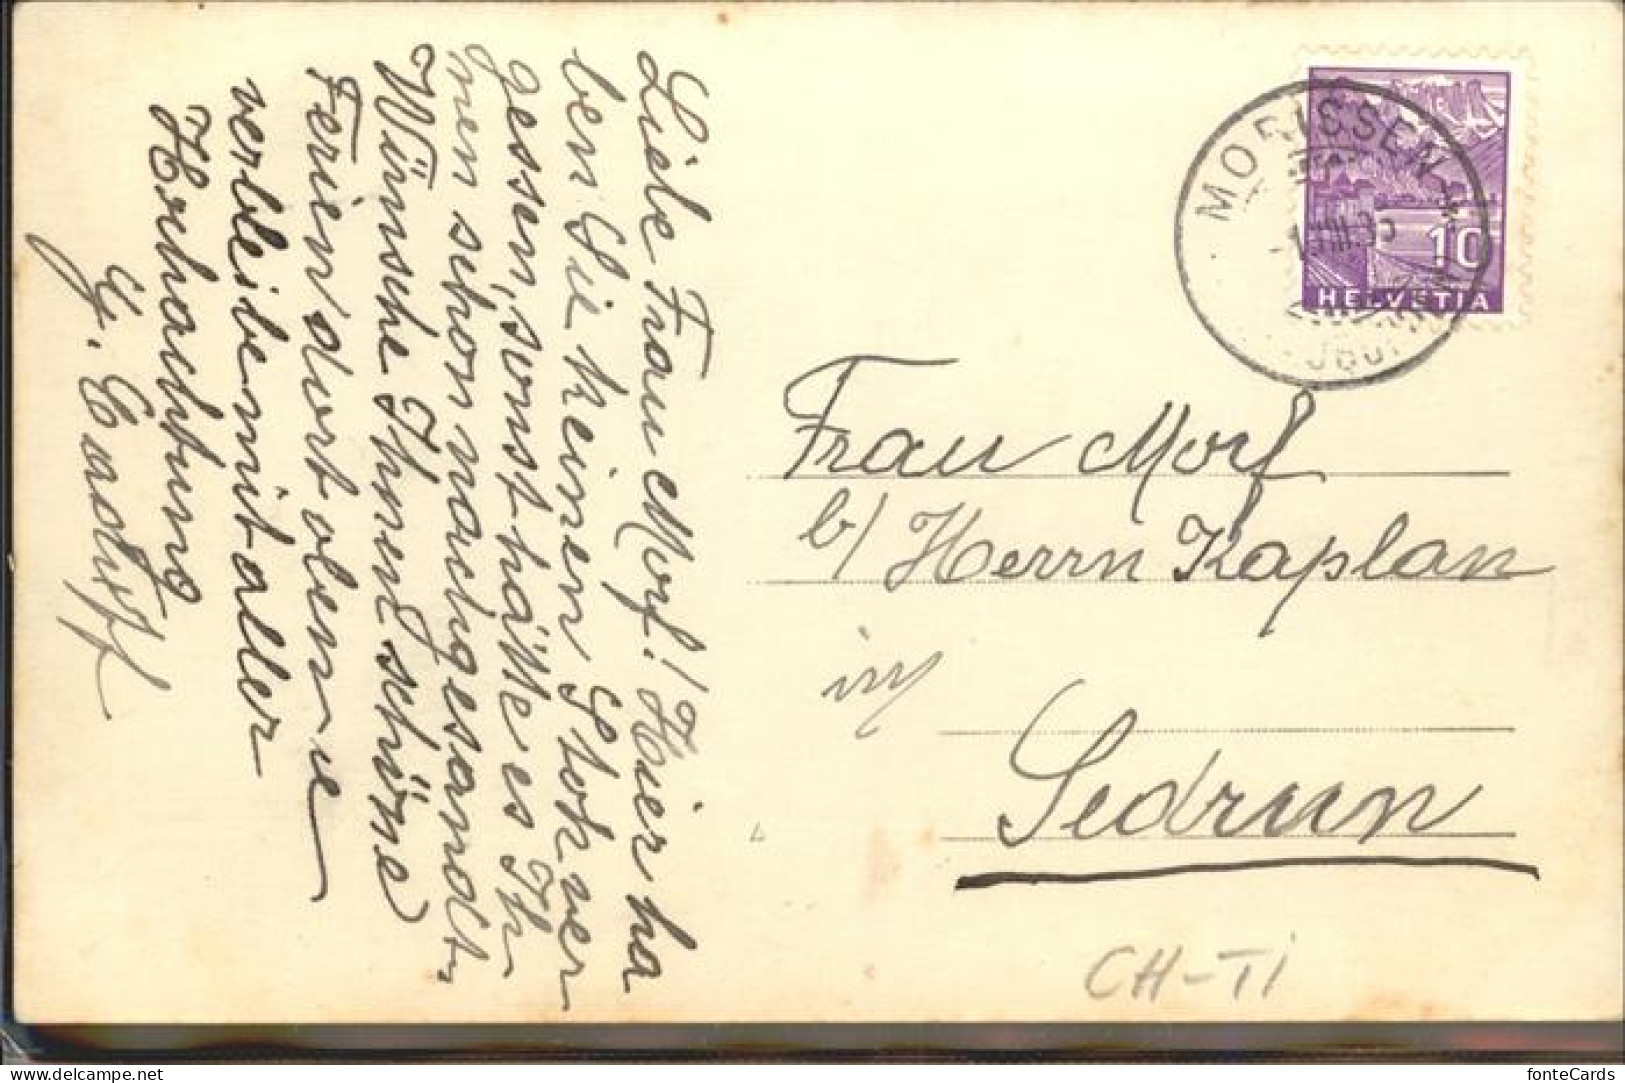 Liebe Frau Morf! Hier ha
ben Sie keinen Stok ver
gessen, sonst hätte es Ih-
nen schon nachgesandt.
Wünsche Ihnen schöne
Ferien dort oben u
verbleibe mit aller
Hochachtung
MORISSEN
HELVETIA
10
Frau Morf
b/ Herrn Kaplan
in
Sedrun
CH-TI
www.delcampe.net
fonteCards